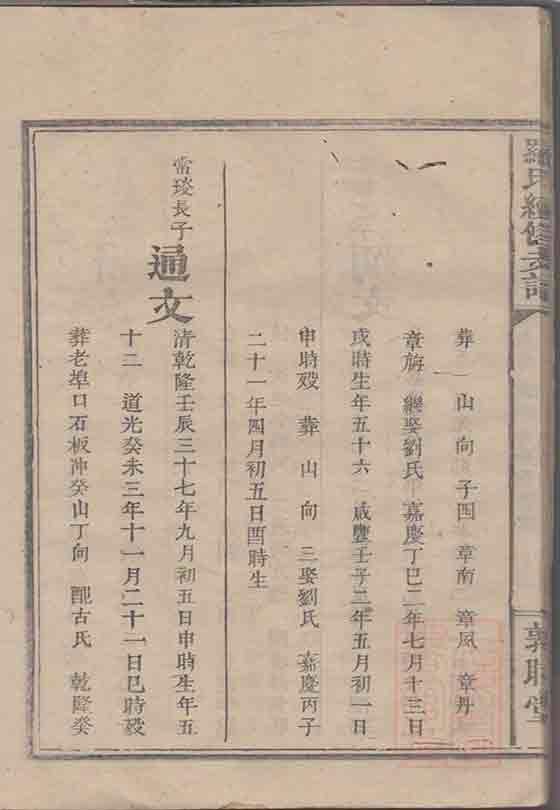 羅氏經修支譜
敦睦堂
葬 山 向 子四 章南 章鳳 章丹
章旃 繼娶劉氏 嘉慶丁巳二年七月十三日
戌時生年五十六 咸豐壬子二年五月初一日
申時殁 葬 山 向 三娶劉氏 嘉慶丙子
二十一年四月初五日酉時生
當琰長子 通文 清乾隆壬辰三十七年九月初五日申時生年五
十二 道光癸未三年十一月二十一日巳時殁
葬老埠口石板冲癸山丁向 配古氏 乾隆癸